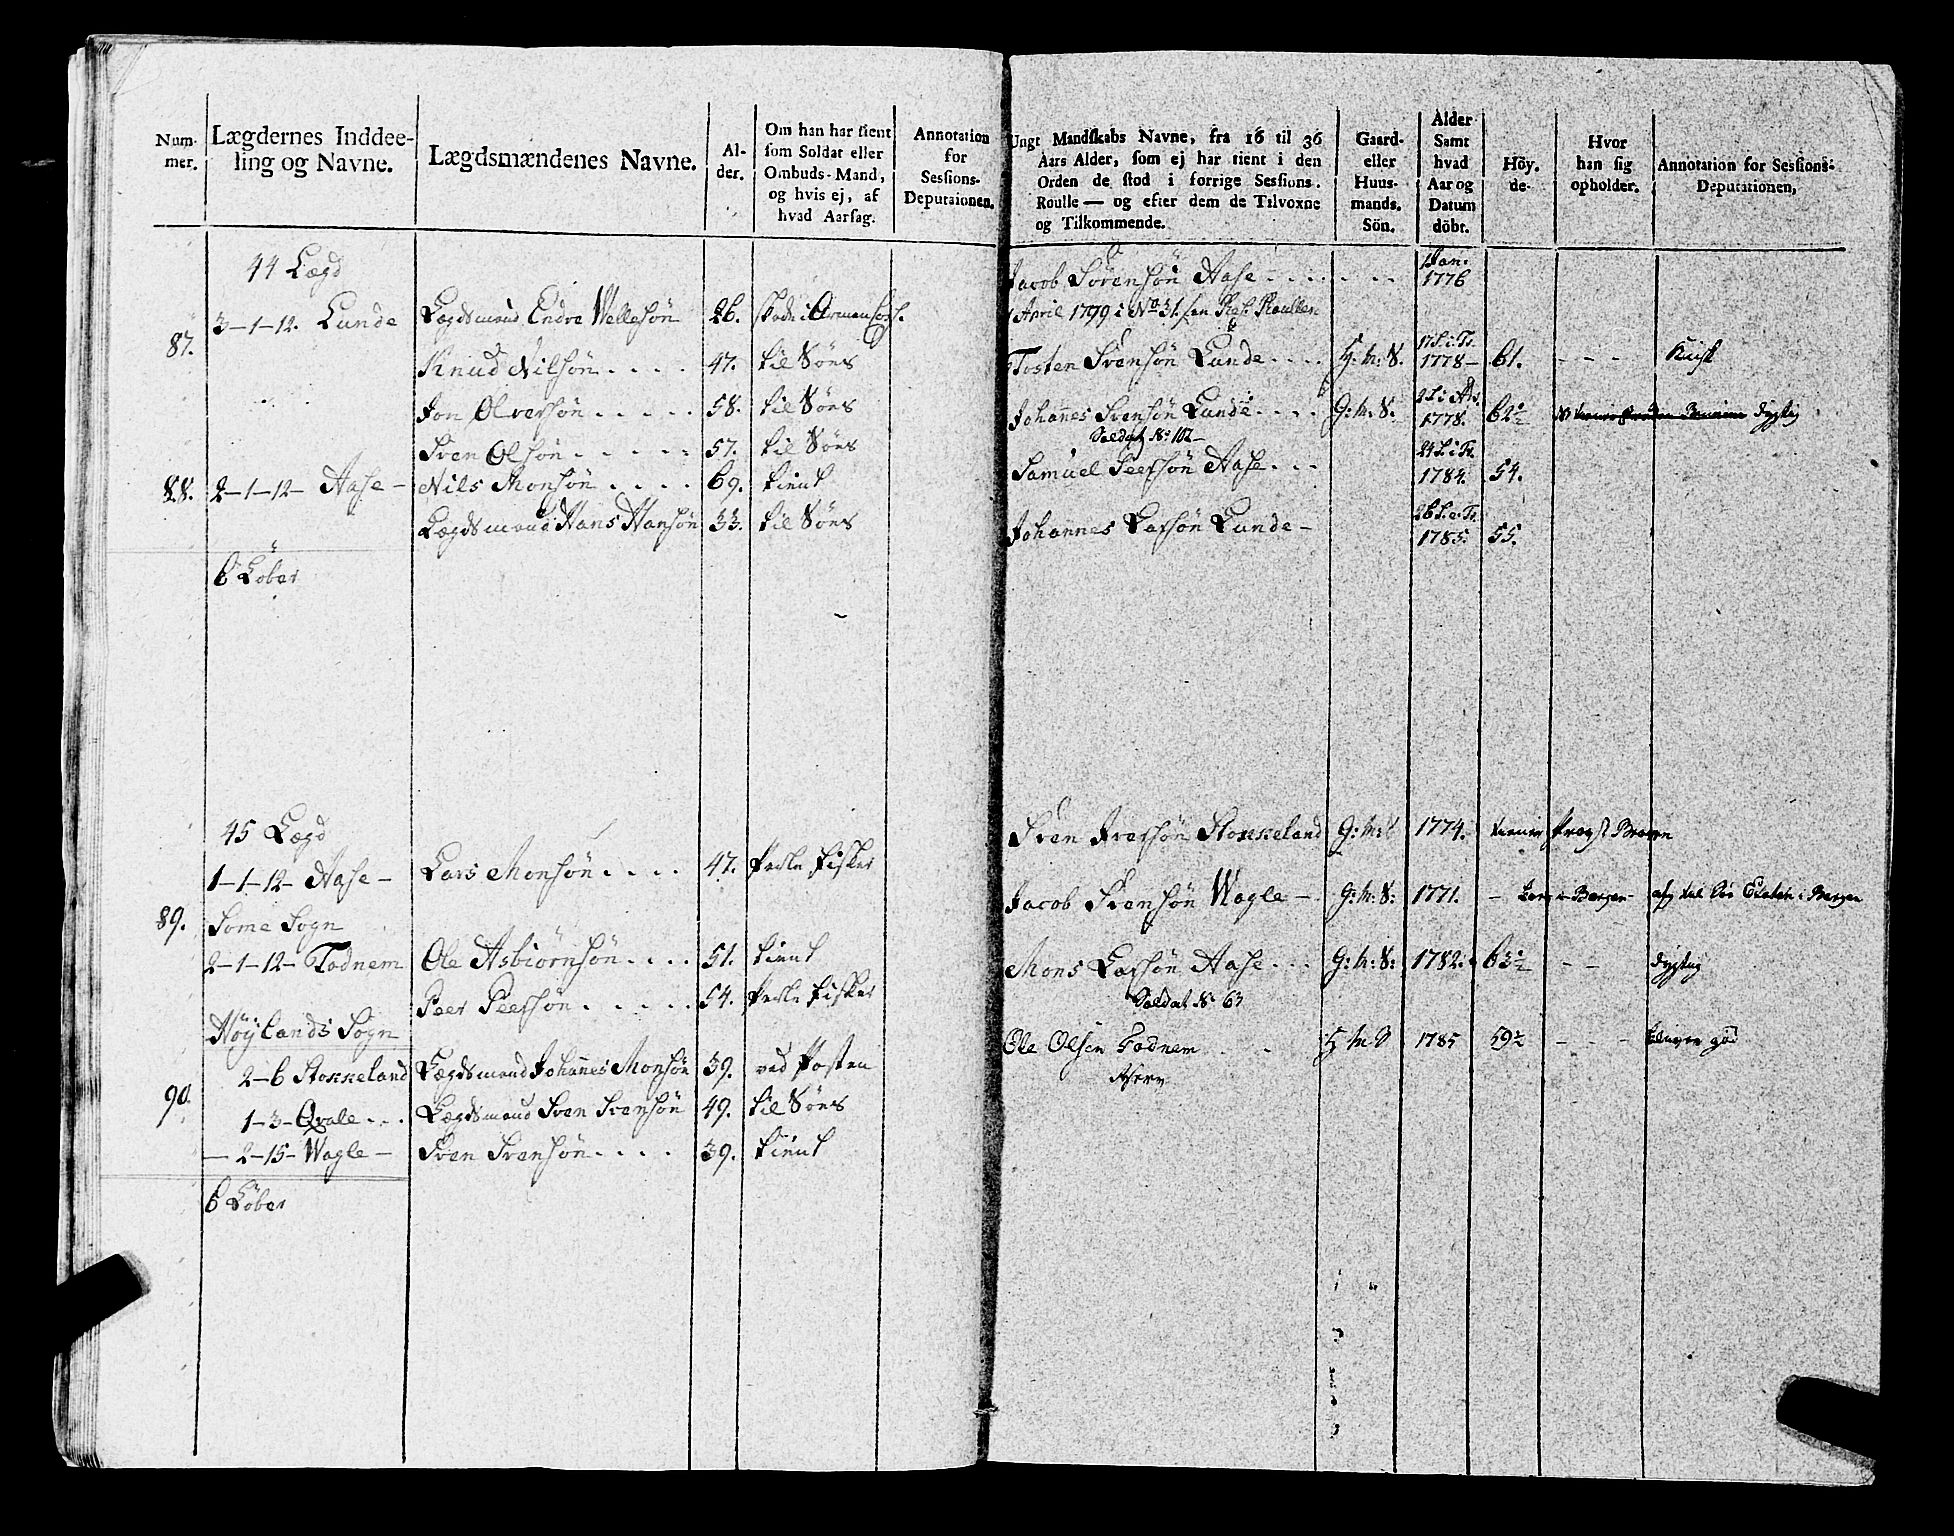 Num-
mer.
Lægdernes Inddee-
ling og Navne.
Lægdsmændenes Navne.
Al-
der.
Om han har tient
som Soldat eller
Ombuds-Mand,
og hvis ej, af
hvad Aarsag.
Annotation
for
Sessions-
Deputaionen.
44 Lægd
87. 3-1-12. Lunde Lægdsmand Endre Wellesøn 26.
Knud Nilsøn . . . . 47. til Søes
Jon Olversøn . . . . . 58. til Søes
Sven Olsøn . . . . . 57. til Søes
88. 2-1-12- Aase - Nils Monsøn . . . . 69. tient
Lægdsmand Hans Hansøn 33. til Søes
6 Løber
45 Lægd
1-1-12- Aase - Lars Monsøn . . . . 47. Perle fisker
89. Some Sogn
2-1-12- Todnem Ole Asbiörnsøn . . . . 51. tient
Peer Peersøn . . . . . 54. Perle fisker
Höylands Sogn
2-6 Stokkeland Lægdsmand Johanes Monsøn 39. ved Posten
90. 1-3- Qvale . . . Lægdsmand Sven Svensøn 49. til Søes
- 2-15- Wagle - Sven Svensøn . . . . 39. tient
6 Løber
Ungt Mandskabs Navne, fra 16 til 36
Aars Alder, som ej har tient i den
Orden de stod i forrige Sessions-
Roulle — og efter dem de Tilvoxne
og Tilkommende.
Gaard-
eller
Huus-
mands-
Sön.
Alder
Samt
hvad
Aar og
Datum
döbt.
Höy-
de-
Hvor
han sig
opholder.
Annotation for Sessions-
Deputationen,
Jacob Sørensøn Aase - . . . - - - Jan: 1776
April 1799 i No 31.
Tosten Svensøn Lunde . . . . H: M: S. 1778- 61. - - -
Johanes Svensøn Lunde . . . . G: M: S. 1778. 62½ dygtig
Soldat No 102-
Samuel Peersøn Aase . . . 1784. 54.
Johannes Larsøn Lunde - 1785. 55.
Sven Iversøn Stokkeland G: M: S 1774. Bergen
Jacob Svensøn Wagle - G: M: S: 1771. - Bergen - i Bergen
Mons Larsøn Aase . . . G: M: S: 1782. 63½ - - dygtig
Soldat No 63
Ole Olsen Todnem . . . H M S 1785 59½ - - -